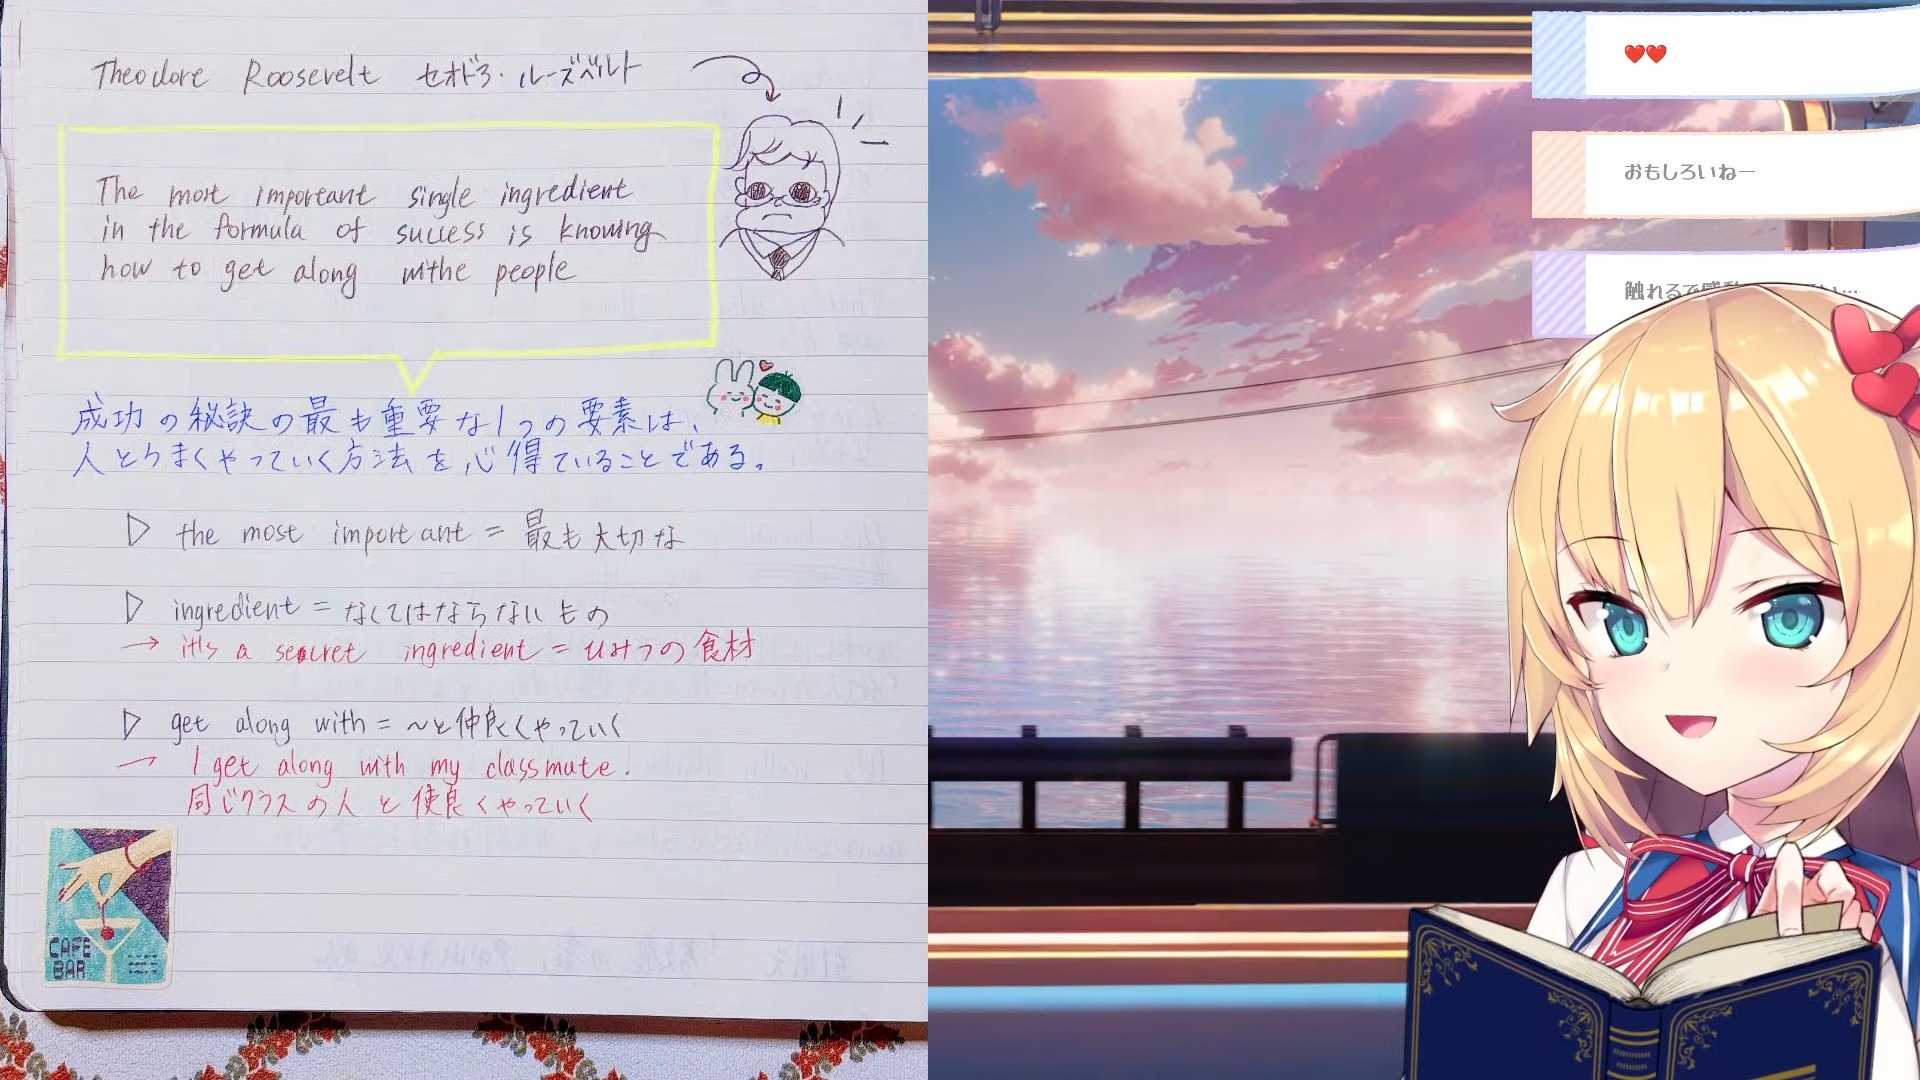 Theodore Roosevelt セオドア・ルーズベルト
The most important single ingredient
in the formula of success is knowing
how to get along withe people
成功の秘訣の最も重要な1つの要素は、
人とうまくやっていく方法を心得ていることである。
▷ the most important = 最も大切な
▷ ingredient = なくてはならないもの
→ it's a secret ingredient = ひみつの食材
▷ get along with = ~と仲良くやっていく
→ I get along with my classmate.
同じクラスの人と使良くやっていく
CAFE
BAR
❤️❤️
おもしろいねー
触れるで感動